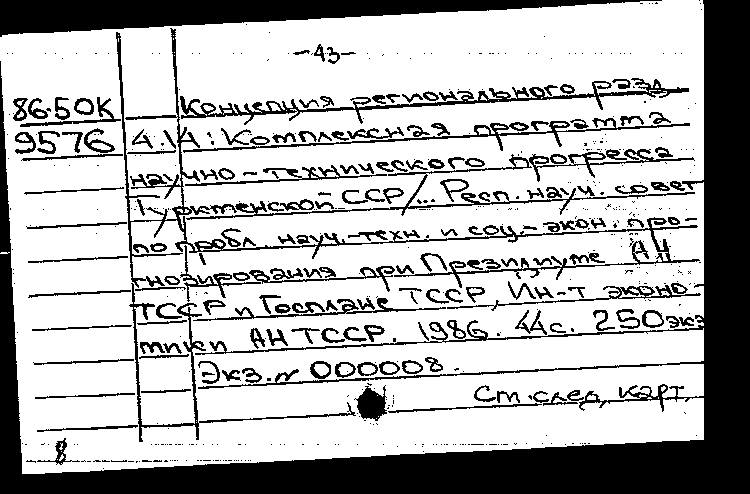 -43-
86-50К Концепция регионального разд.
9576 4.1А: Комплексная программа
научно-технического прогресса
Туркменской ССР/... Респ. науч. совет
по пробл. науч.-техн. и соц.-экон. про-
гнозирования при Президиуме АН
ТССР и Госплане ТССР, Ин-т эконо-
мики АН ТССР. 1986. 44с. 250экз
Экз.N 000008.
См.след, карт.
8